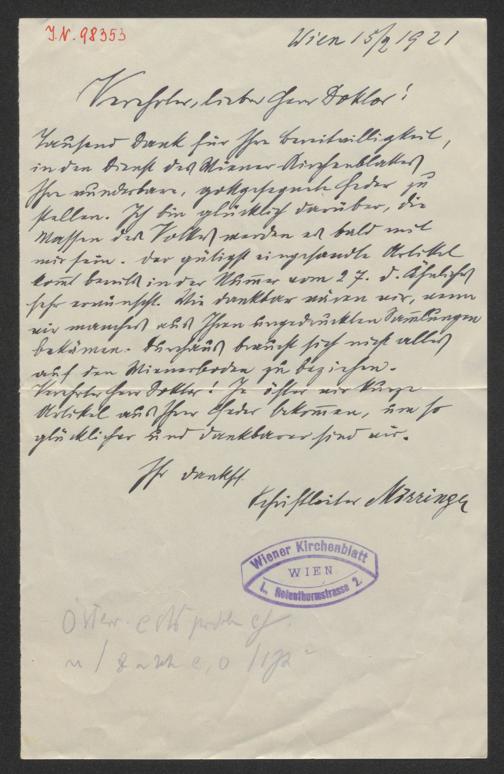 I.N. 98353
Wien 15/2 1921
Verehrter, lieber Herr Doktor!
Tausend Dank für Ihre Bereitwilligkeit,
in den Dienst des Wiener Kirchenblattes
Ihre wunderbare, gottgesegnete Feder zu
stellen. Ich bin glücklich darüber, die
Massen des Volkes werden es bald mit
mir sein. Der gütigst eingesandte Artikel
kommt bereits in der Nummer vom 27. d. Ähnliches
sehr erwünscht. Wie dankbar wären wir, wenn
wir manches aus Ihren ungedruckten Sammlungen
bekämen. Durchaus braucht sich nicht alles
auf den Wienerboden zu beziehen.
Verehrter Herr Doktor! Je öfter wir kurze
Artikel aus Ihrer Feder bekommen, um so
glücklicher und dankbarer sind wir.
Ihr dankb.
Schriftleiter Mörzinger
Wiener Kirchenblatt
WIEN
I., Rotenthurmstrasse 2.